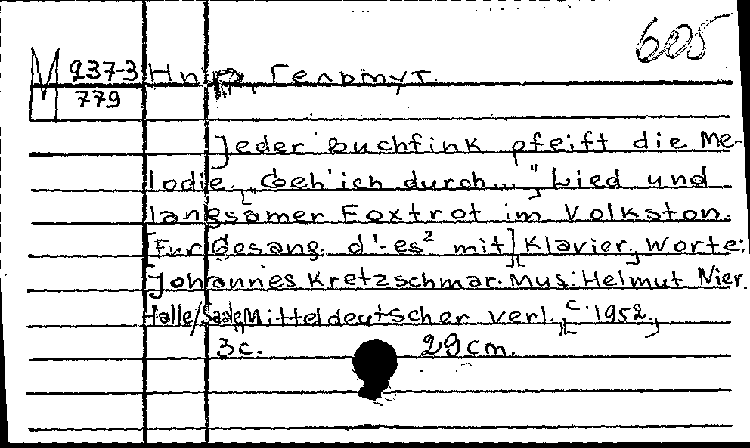 605
М 237-3
779
Нир, Гелрмут.
Jeder Buchfink pfeift die Me-
lodie „Geh' ich durch...", Lied und
langsamer Foxtrot im Volkston.
[Für Gesang. d'-es² mit], Klavier, Worte:
Johannes Kretzschmar. Mus.: Helmut Nier.
Halle/Saale, Mitteldeutscher Verl., [c. 1952.,
3 с. 29 cm.